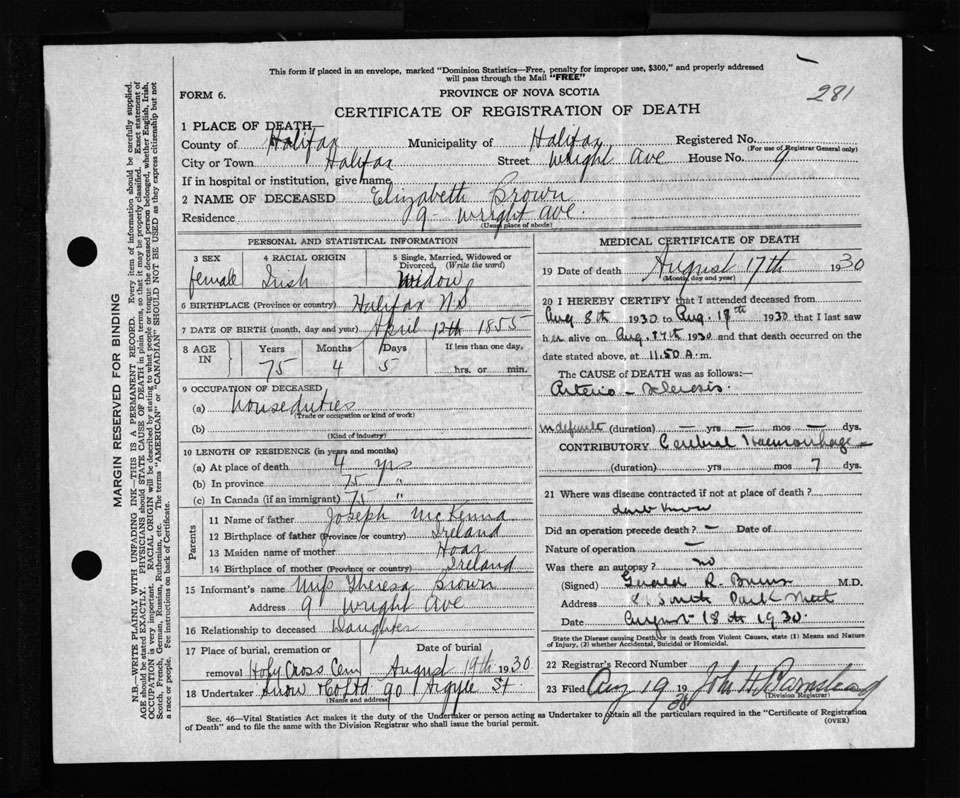 This form if placed in an envelope, marked "Dominion Statistics—Free, penalty for improper use, $300," and properly addressed
will pass through the Mail "FREE"
281
FORM 6.
PROVINCE OF NOVA SCOTIA
CERTIFICATE OF REGISTRATION OF DEATH
1 PLACE OF DEATH—
County of Halifax Municipality of Halifax Registered No.
(For use of Registrar General only)
City or Town Halifax Street Wright Ave House No. 9
If in hospital or institution, give name
2 NAME OF DECEASED Elizabeth Brown
Residence 9 - Wright Ave.
(Usual place of abode)
PERSONAL AND STATISTICAL INFORMATION
3 SEX 4 RACIAL ORIGIN 5 Single, Married, Widowed or Divorced, (Write the word)
female Irish Widow
6 BIRTHPLACE (Province or country) Halifax N.S
7 DATE OF BIRTH (month, day and year) April 12th 1855
8 AGE IN Years Months Days If less than one day,
75 4 5 hrs. or min.
9 OCCUPATION OF DECEASED
(a) house duties
(Trade or occupation or kind of work)
(b)
(Kind of industry)
10 LENGTH OF RESIDENCE (in years and months)
(a) At place of death 4 yrs
(b) In province 75 "
(c) In Canada (if an immigrant) 75 "
Parents
11 Name of father Joseph McKenna
12 Birthplace of father (Province or country) Ireland
13 Maiden name of mother Hoar
14 Birthplace of mother (Province or country) Ireland
15 Informant's name Theresa Brown
Address 9 Wright Ave
16 Relationship to deceased Daughter
17 Place of burial, cremation or removal Date of burial
Holy Cross Cem August 19th 1930
18 Undertaker Snow & Co Ltd 90 Argyle St
(Name and address)
MEDICAL CERTIFICATE OF DEATH
19 Date of death August 17th 1930
(Month, day and year)
20 I HEREBY CERTIFY that I attended deceased from
Aug 8th 1930 to Aug. 1930 that I last saw
h er alive on Aug. 17th 1930 and that death occurred on the
date stated above, at 11.50 A.m.
The CAUSE of DEATH was as follows:—
Arterio - Sclerosis.
indefinite (duration) — yrs — mos — dys.
CONTRIBUTORY Cerebral Haemorrhage
(duration) yrs mos 7 dys.
21 Where was disease contracted if not at place of death?
Did an operation precede death? — Date of
Nature of operation —
Was there an autopsy? no
(Signed) Gerald R. Burns M.D.
Address South Park Street
Date August 18th 1930.
State the Disease causing Death, or in death from Violent Causes, state (1) Means and Nature
of Injury, (2) whether Accidental, Suicidal or Homicidal.
22 Registrar's Record Number
23 Filed Aug 19 1930 John H Barnstead
(Division Registrar)
Sec. 46—Vital Statistics Act makes it the duty of the Undertaker or person acting as Undertaker to obtain all the particulars required in the "Certificate of Registration
of Death" and to file the same with the Division Registrar who shall issue the burial permit.
(OVER)
MARGIN RESERVED FOR BINDING
N.B.—WRITE PLAINLY WITH UNFADING INK—THIS IS A PERMANENT RECORD. Every item of information should be carefully supplied.
AGE should be stated EXACTLY. PHYSICIANS should STATE CAUSE OF DEATH in plain terms, so that it may be properly classified. Exact statement of
OCCUPATION is very important. RACIAL ORIGIN will be described by stating to what people or tongue the deceased person belonged, whether English, Irish,
Scotch, French, German, Russian, Ruthenian, etc. The terms "AMERICAN" or "CANADIAN" SHOULD NOT BE USED as they express citizenship but not
a race or people. Fee instructions on back of Certificate.